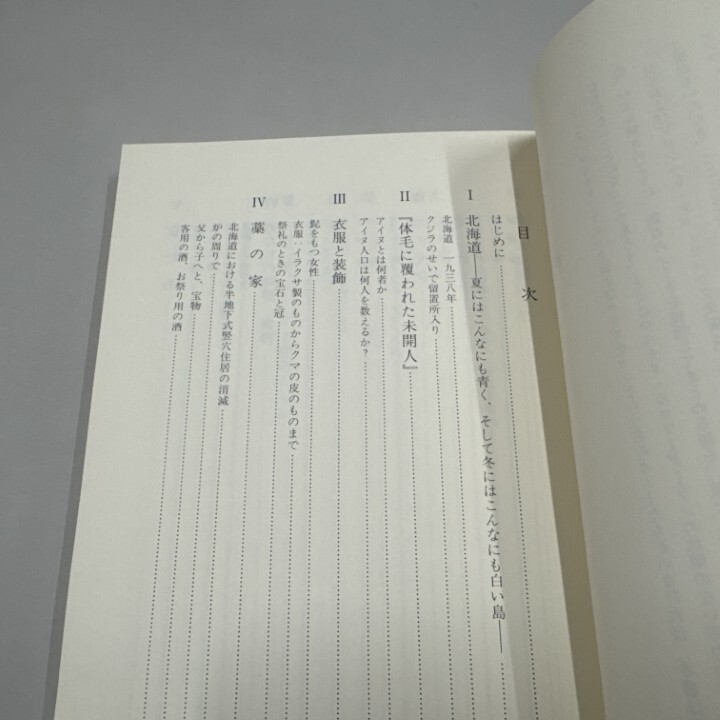 目次
はじめに
I 北海道――夏にはこんなにも青く、そして冬にはこんなにも白い島――
北海道 一九三八年
クジラのせいで留置所入り
II 『体毛に覆われた未開人』
アイヌとは何者か
アイヌ人口は何人を数えるか?
III 衣服と装飾
髭をもつ女性
衣服‥イラクサ製のものからクマの皮のものまで
祭礼のときの宝石と冠
IV 藁の家
北海道における半地下式竪穴住居の消滅
炉の周りで
父から子へと、宝物
客用の酒、お祭り用の酒